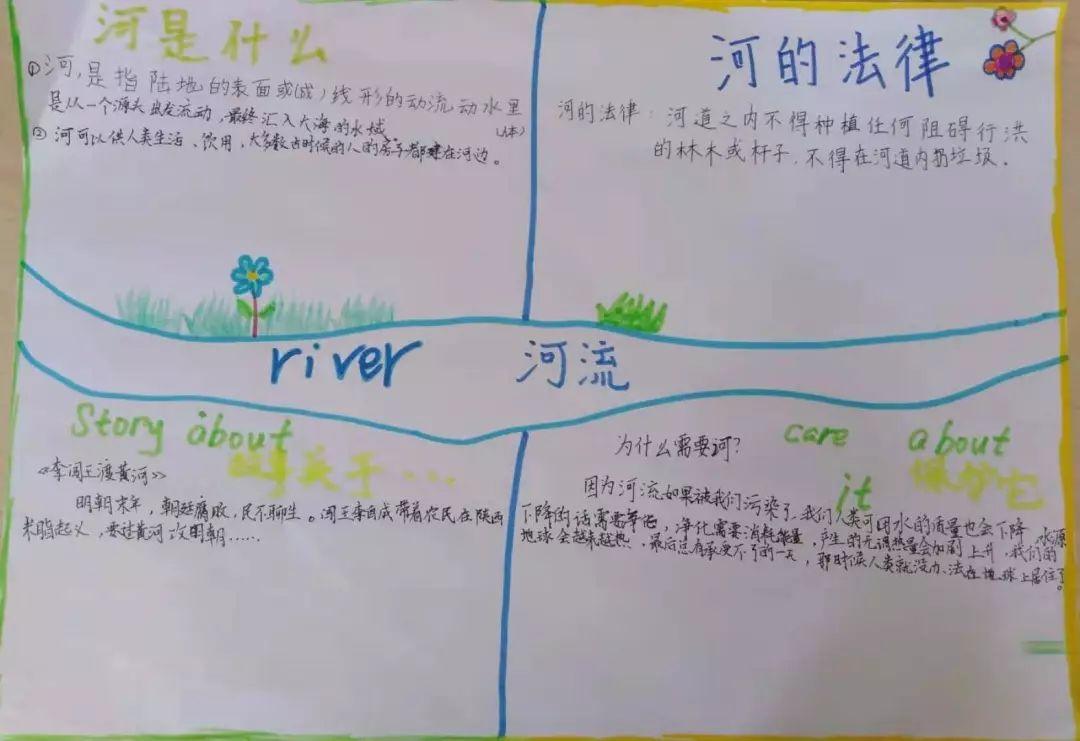 河是什么
①河,是指陆地的表面或(成)线形的动流动水里(体)
是从一个源头出发流动,最终汇入大海的水域
②河可以供人类生活、饮用,大多数古时候的人的房子都建在河边。
河的法律
河的法律:河道之内不得种植任何阻碍行洪
的林木或杆子,不得在河道内扔垃圾.
river 河流
Story about
故事关于···
《李闯王渡黄河》
明朝末年,朝廷腐败,民不聊生。闯王李自成带着农民在陕西
米脂起义,要过黄河攻明朝……
care about
it 保护它
为什么需要河?
因为河流如果被我们污染了,我们人类可用水的质量也会下降,水源
下降的话需要净化,净化需要消耗能量,产生的热量会加剧上升,我们的
地球会越来越热,最后总有承受不了的一天,那时候人类就没办法在地球上居住了。